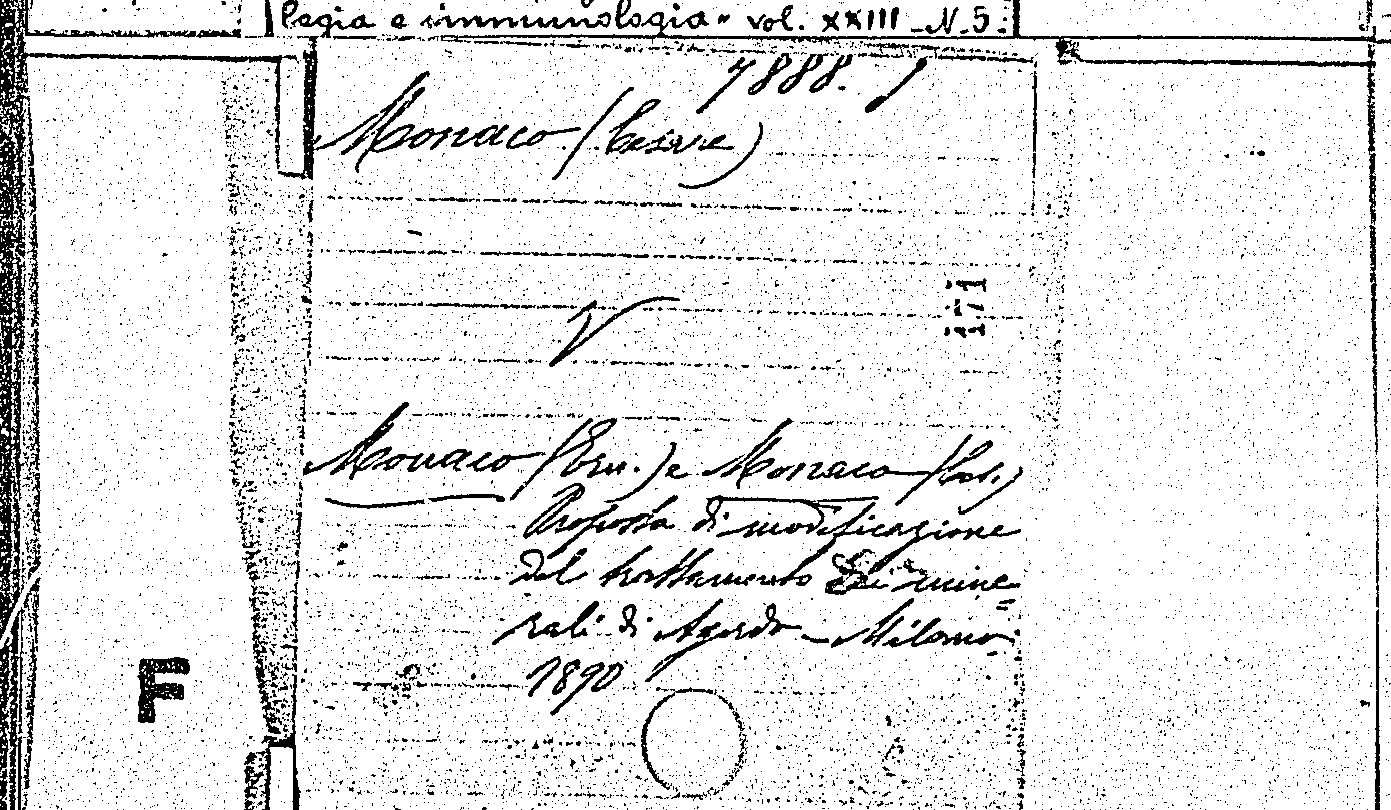 logia e immunologia" vol. XXIII - N. 5.
7888. J
Monaco (Cesare)
V
171
Monaco (Ern.) e Monaco (Ces.)
Proposta di modificazione
del trattamento dei mine=
rali di Agordo - Milano.
1890
F